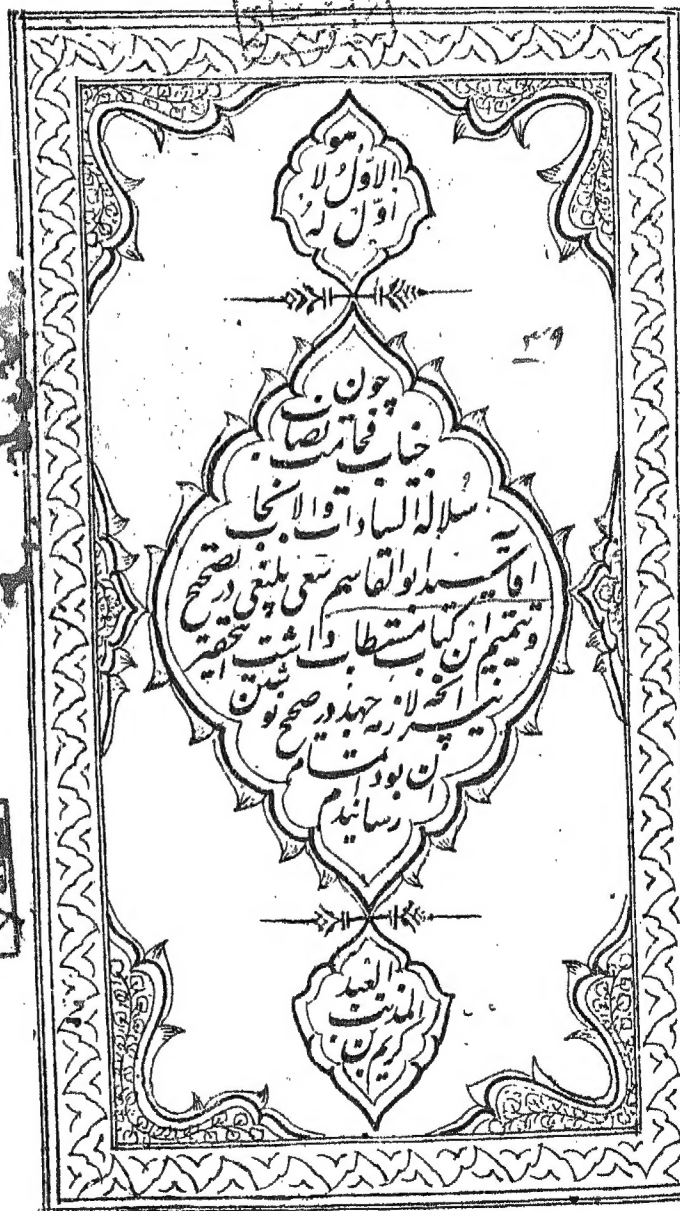 هو
الاوّل لا
اوّل له
چون
جناب فخامت نصاب
سلالة السادات والانجاب
آقا سید ابوالقاسم سعی بلیغی در تصحیح
و تتمیم این کتاب مستطاب داشت این حقیر
نیز آنچه لازمه جهد در صحیح نوشتن
آن بود باتمام
رسانیدم
العبد
المذنب
کریم